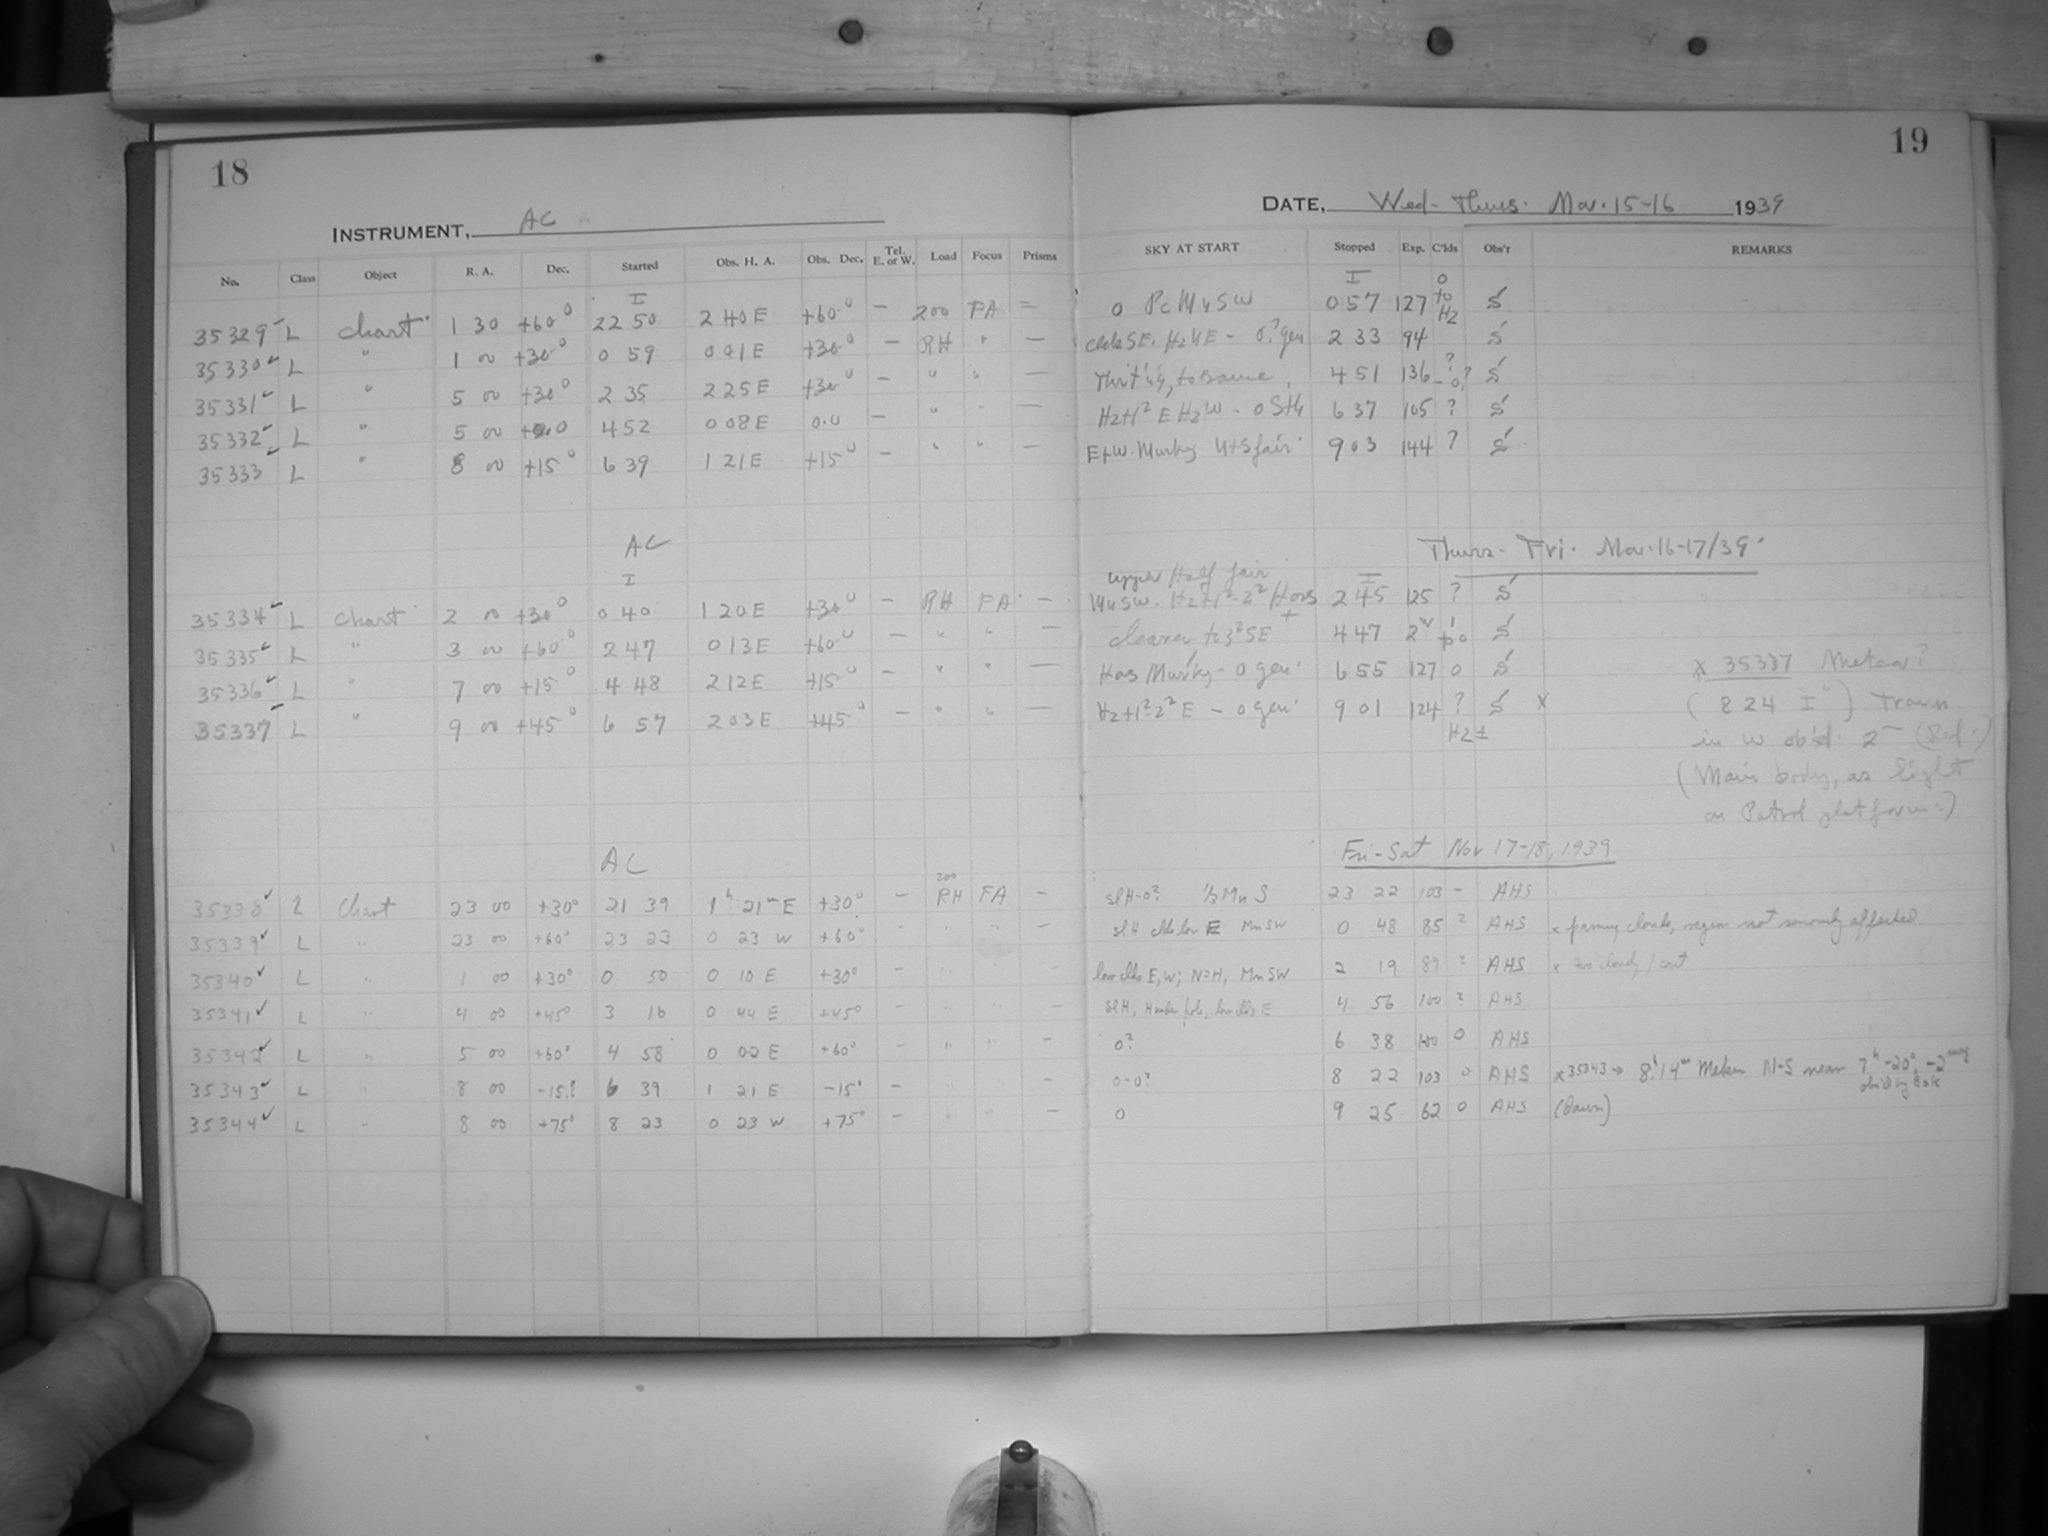 18
19
INSTRUMENT, AC
DATE, Wed - Thurs. Nov. 15-16 1939
No. Class Object R. A. Dec. Started Obs. H. A. Obs. Dec. Tel. E. or W. Load Focus Prisms SKY AT START Stopped Exp. C'lds Obs'r REMARKS
I I
35329 L Chart 1 30 +60° 22 50 2 40 E +60° – 200 FA = 0 057 127 0 to Hz S
35330 L " 1 00 +30° 0 59 0 01 E +30° – RH " – 2 33 94 S
35331 L " 5 00 +30° 2 35 2 25 E +30° – " " – 4 51 136 ? S
35332 L " 5 00 4 52 0 08 E 0.0 – " " – 6 37 105 ? S
35333 L " 8 00 +15° 6 39 1 21 E +15° – " " – E+W. Murky N+S fair 9 03 144 ? S
AC
Thurs - Fri. Nov. 16-17/39
I upper Half fair I
35334 L Chart 2 00 +30° 0 40 1 20 E +30° – RH FA – 2 45 125 ? S
35335 L " 3 00 +60° 2 47 0 13 E +60° – " " – clearer to 3² SE 4 47 S
35336 L " 7 00 +15° 4 48 2 12 E +15° – " " – Has Murky – 0 gen. 6 55 127 0 S
35337 L " 9 00 +45° 6 57 2 03 E +45° – " " – E – 0 gen. 9 01 124 ? Hz± S x
x 35337 Meteor?
(8 24 I) Train
in W obs'd.
(Main body, as light
on Patrol platform)
AC
Fri-Sat Nov 17-18, 1939
35338 L Chart 23 00 +30° 21 39 1ʰ 21ᵐ E +30° – 200 RH FA – sl H-0? ½ Mn S 23 22 103 – AHS
35339 L " 23 00 +60° 23 23 0 23 W +60° – " " – sl H clds low E Mn SW 0 48 85 ? AHS x passing clouds, region not seriously affected
35340 L " 1 00 +30° 0 50 0 10 E +30° – " " – low clds E, W; N=H, Mn SW 2 19 89 ? AHS x too cloudy / cont
35341 L " 4 00 +45° 3 16 0 44 E +45° – " " – sl H, H under pole, low clds E 4 56 100 ? AHS
35342 L " 5 00 +60° 4 58 0 02 E +60° – " " – 0? 6 38 100 0 AHS
35343 L " 8 00 -15° 6 39 1 21 E -15° – " " – 0-0? 8 22 103 0 AHS x 35343 → 8ʰ14ᵐ Meteor N-S near 7ʰ -20°, -2 mag
35344 L " 8 00 +75° 8 23 0 23 W +75° – " " – 0 9 25 62 0 AHS (Dawn)